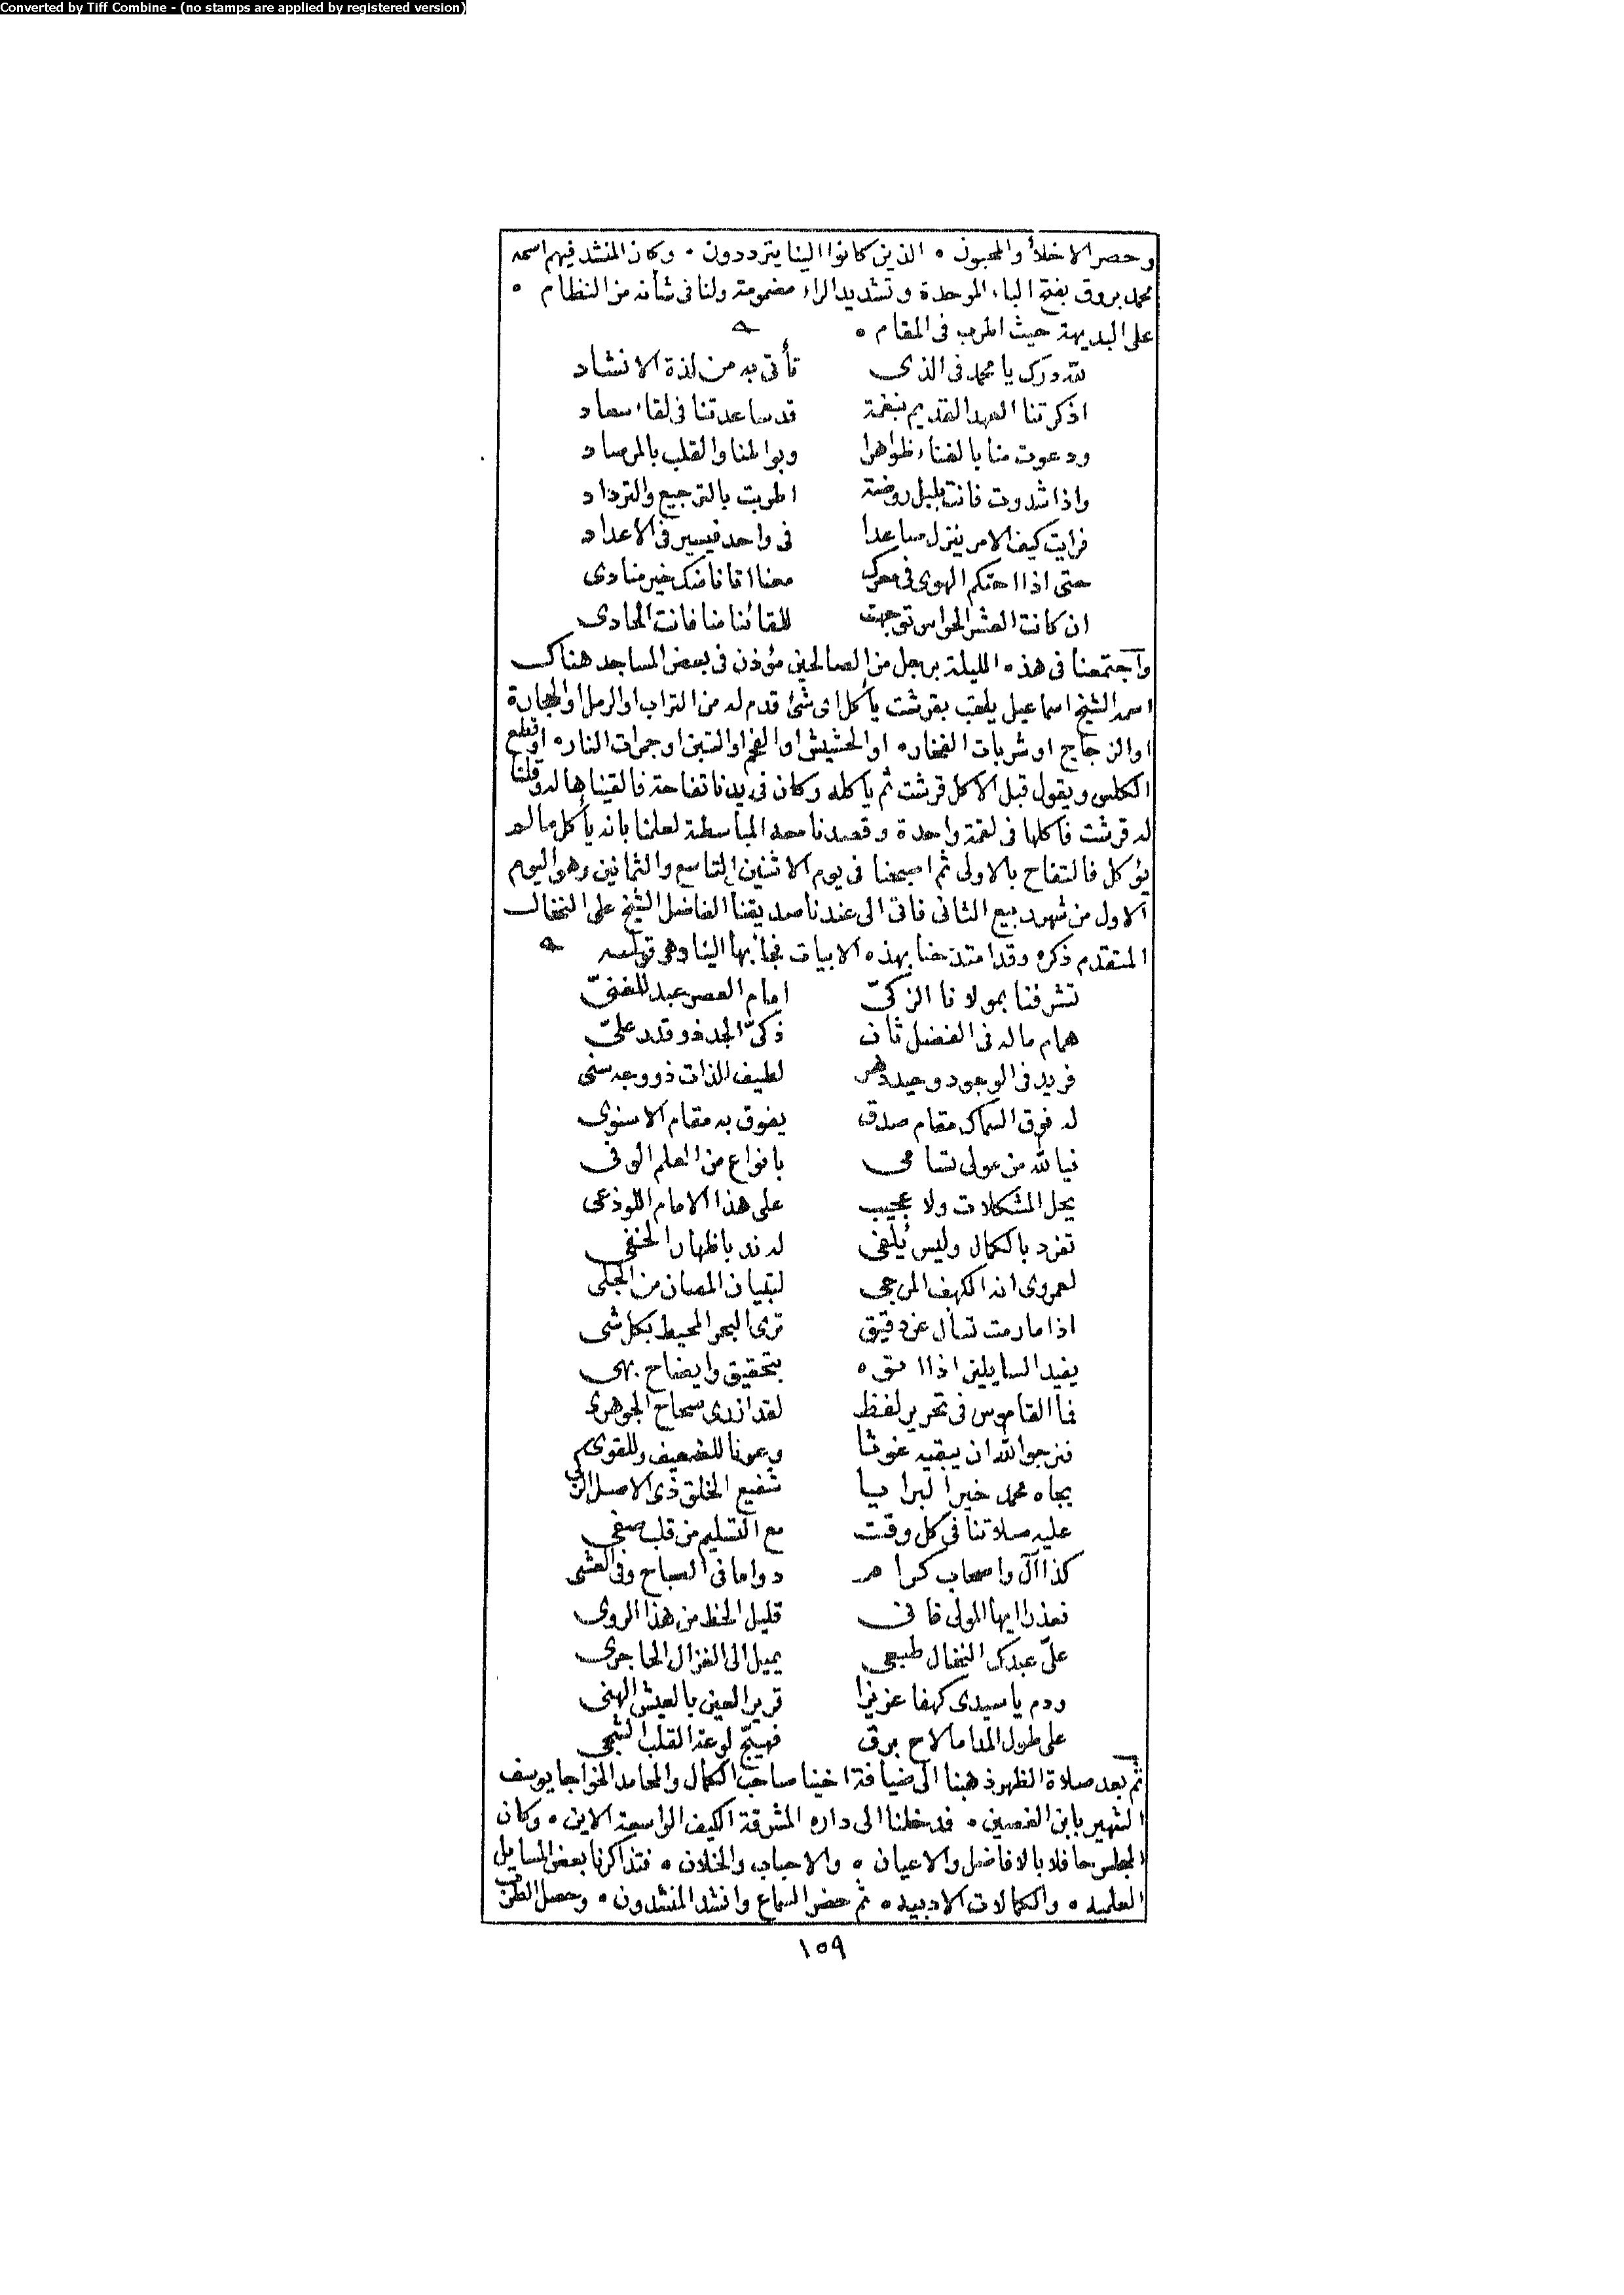 Converted by Tiff Combine - (no stamps are applied by registered version)
وحصر الاخلأ والمحبون ۰ الذين كانوا الينا يترددون ۰ وكان المنشد فيهم اسمه
محمد بروق بفتح الباء الموحدة وتشديد الراء مضمومة ولنا فى شأنه من النظام ۰
على البديهة حيث اطرب فى المقام ۰
لله درك يا محمد فى الذى تأتى به من لذة الانشاد
اذكرتنا العهد القديم بنغمة قد ساعدتنا فى لقاء سعاد
ودعوت منا بالغناء ظواهرا وبواطنا والقلب بالمرصاد
واذا شدوت فانت بلبل روضة اطربت بالترجيع والترداد
فرايت كيف الامر ينزل ساعدا فى واحد فيسير فى الأعداد
حتى اذا احتكم الهوى فى معرك معنا اقافاضك خير منادى
ان كانت العشر الحواس توجهت للقائنا منا فانت الحادى
وآجتمعنا فى هذه الليلة برجل من الصالحين مؤذن فى بعض المساجد هناك
اسمه الشيخ اسماعيل يلقب بقرشت يأكل اى شئ قدم له من التراب او الرمل او الحجارة
او الزجاج او شربات الفخاره او الحشيش او الفحم او التبن او جمرات الناره او قطع
الكلس ويقول قبل الاكل قرشت ثم ياكله وكان فى يدنا تفاحة فالقيناها له وقلنا
له قرشت فاكلها فى لقمة واحدة وقصدنا معه المباسطة لعلمنا بانه يأكل ما لم
يؤكل فالتفاح بالاولى ثم اصبحنا فى يوم الاثنين التاسع والثمانين وهو اليوم
الاول من شهر ربيع الثانى فاتى الى عندنا صديقنا الفاضل الشيخ على النخال
المتقدم ذكره وقد امتدحنا بهذه الابيات فجا بها الينا وهو قوله
تشرفنا بمولانا الزكىّ امام العصر عبد للغنىّ
همام ماله فى الفضل ثان ذكىّ الجد ذو قدر علىّ
فريد فى الوجود وحيد دهر لطيف الذات ذو وجه سنى
له فوق السماك مقام صدق يفوق به مقام الاسنوى
فيا لله من مولى تسامى بانواع من العلم الوفى
يحل المشكلات ولا عجيب على هذا الامام اللوذعى
تفرد بالكمال وليس يُلفى له ند باظهار الخفى
لعمروى انه الكهف المرجى لتبيان المصان من الجلى
اذا مارمت تسأل عن دقيق ترى البحر المحيط بكل شى
يفيد السايلين اذا اتوه بتحقيق وايضاح بهى
فما القاموس فى تحرير لفظ لقد ازرى صحاح الجوهرى
فنرجو الله ان يبقيه غوثا وعونا للضعيف وللقوى
بجاه محمد خير البرايا شفيع الخلق ذى الاصل الزكى
عليه صلاتنا فى كل وقت مع التسليم من قلب صفى
كذا آل واصحاب كرام دواما فى الصباح وفى العشى
فعذرا ايها المولى فانى قليل الحظ من هذا الروى
علىّ عبدك النخال طبعى يميل الى الغزال الحاجرى
ودم يا سيدى كهفا عزيزا قرير العين بالعيش الهنى
على طول المدا مالاح برق فهيّج لوعة القلب الشجى
ثم بعد صلاة الظهر ذهبنا الى ضيافة اخينا صاحب الكمال والمحامد الخواجا يوسف
الشهير بابن الغصين ۰ فدخلنا الى داره المشرقة الكيف الواسعة الاين ۰ وكان
المجلس حافلا بالافاضل والاعيان ۰ والاحباب والخلان ۰ فتذاكرنا بعض المسايل
العلميه ۰ والكمالات الادبيه ۰ ثم حضر السماع وانشد المنشدون ۰ وحصل الطرب
١٥٩